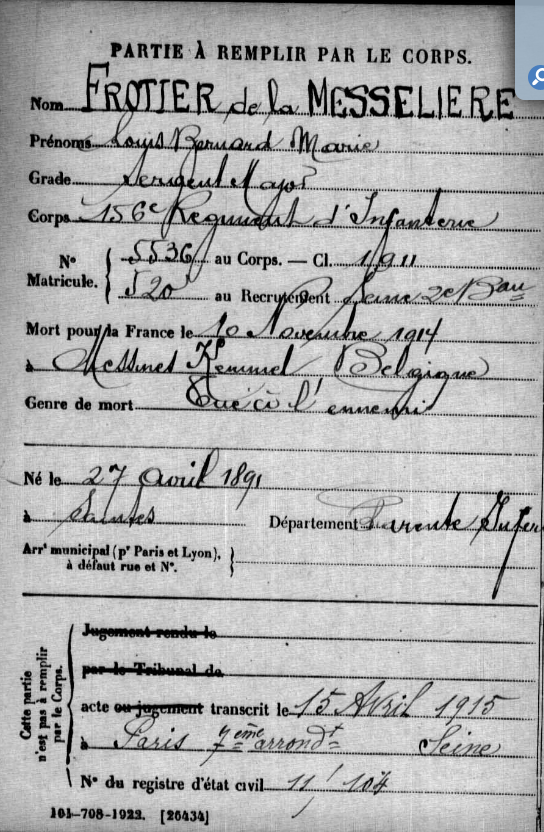 PARTIE À REMPLIR PAR LE CORPS.
Nom FROTIER de la MESSELIERE
Prénoms Louis Bernard Marie
Grade Sergent Major
Corps 156e Régiment d'Infanterie
N° Matricule. { 5536 au Corps. — Cl. 1911
520 au Recrutement Seine 2e Bau
Mort pour la France le 10 Novembre 1914
à Messines Kemmel Belgique
Genre de mort Tué à l'ennemi
Né le 27 avril 1891
à Saintes Département Charente Infer
Arrt municipal (pr Paris et Lyon), à défaut rue et N°. }
Cette partie n'est pas à remplir par le Corps.
Jugement rendu le
par le Tribunal de
acte ou jugement transcrit le 15 Avril 1915
à Paris 7ème arrondt Seine
N° du registre d'état civil 11/104
101-708-1922. [26434]